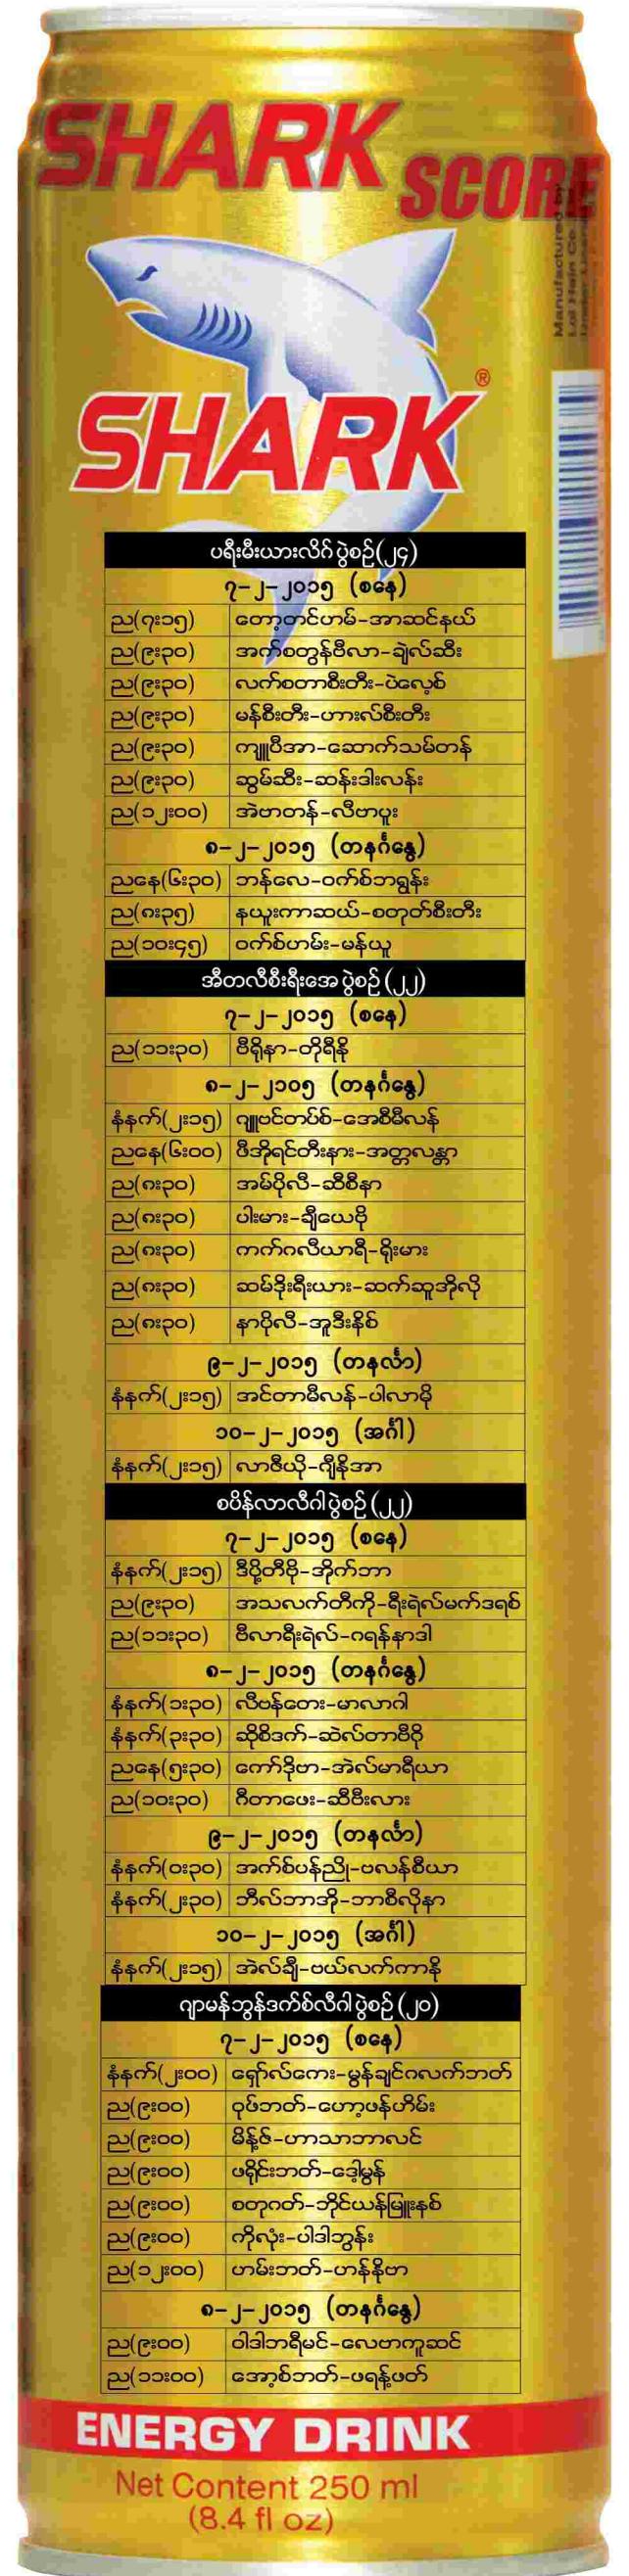 SHARK SCORE
Manufactured by
SHARK®
ပရီးမီးယားလိဂ် ပွဲစဉ်(၂၄)
၇-၂-၂၀၁၅ (စနေ)
ည(၇း၁၅) တော့တင်ဟမ်-အာဆင်နယ်
ည(၉း၃၀) အက်စတွန်ဗီလာ-ချဲလ်ဆီး
ည(၉း၃၀) လက်စတာစီးတီး-ပဲလေ့စ်
ည(၉း၃၀) မန်စီးတီး-ဟားလ်စီးတီး
ည(၉း၃၀) ကျူပီအာ-ဆောက်သမ်တန်
ည(၉း၃၀) ဆွမ်ဆီး-ဆန်းဒါးလန်း
ည(၁၂း၀၀) အဲဗာတန်-လီဗာပူး
၈-၂-၂၀၁၅ (တနင်္ဂနွေ)
ညနေ(၆း၃၀) ဘန်လေ-ဝက်စ်ဘရွန်း
ည(၈း၃၅) နယူးကာဆယ်-စတုတ်စီးတီး
ည(၁၀း၄၅) ဝက်စ်ဟမ်း-မန်ယူ
အီတလီစီးရီးအေ ပွဲစဉ် (၂၂)
၇-၂-၂၀၁၅ (စနေ)
ည(၁၁း၃၀) ဗီရိုနာ-တိုရီနို
၈-၂-၂၁၀၅ (တနင်္ဂနွေ)
နံနက်(၂း၁၅) ဂျူဗင်တပ်စ်-အေစီမီလန်
ညနေ(၆း၀၀) ဖီအိုရင်တီးနား-အတ္တလန္တာ
ည(၈း၃၀) အမ်ပိုလီ-ဆီစီနာ
ည(၈း၃၀) ပါးမား-ချီယေဗို
ည(၈း၃၀) ကက်ဂလီယာရီ-ရိုးမား
ည(၈း၃၀) ဆမ်ဒိုးရီးယား-ဆက်ဆူအိုလို
ည(၈း၃၀) နာပိုလီ-အူဒီးနိစ်
၉-၂-၂၀၁၅ (တနင်္လာ)
နံနက်(၂း၁၅) အင်တာမီလန်-ပါလာမို
၁၀-၂-၂၀၁၅ (အင်္ဂါ)
နံနက်(၂း၁၅) လာဇီယို-ဂျီနိုအာ
စပိန်လာလီဂါ ပွဲစဉ် (၂၂)
၇-၂-၂၀၁၅ (စနေ)
နံနက်(၂း၁၅) ဒီပို့တီဗို-အိုက်ဘာ
ည(၉း၃၀) အသလက်တီကို-ရီးရဲလ်မက်ဒရစ်
ည(၁၁း၃၀) ဗီလာရီးရဲလ်-ဂရန်နာဒါ
၈-၂-၂၀၁၅ (တနင်္ဂနွေ)
နံနက်(၁း၃၀) လီဗန်တေး-မာလာဂါ
နံနက်(၃း၃၀) ဆိုစိဒက်-ဆဲလ်တာဗီဂို
ညနေ(၅း၃၀) ကော်ဒိုဗာ-အဲလ်မာရီယာ
ည(၁၀း၃၀) ဂီတာဖေး-ဆီဗီးလား
၉-၂-၂၀၁၅ (တနင်္လာ)
နံနက်(၀း၃၀) အက်စ်ပန်ညို-ဗလန်စီယာ
နံနက်(၂း၃၀) ဘီလ်ဘာအို-ဘာစီလိုနာ
၁၀-၂-၂၀၁၅ (အင်္ဂါ)
နံနက်(၂း၁၅) အဲလ်ချီ-ဗယ်လက်ကာနို
ဂျာမန်ဘွန်ဒက်စ်လီဂါ ပွဲစဉ် (၂၀)
၇-၂-၂၀၁၅ (စနေ)
နံနက်(၂း၀၀) ရှော်လ်ကေး-မွန်ချင်ဂလက်ဘတ်
ည(၉း၀၀) ဝုဖ်ဘတ်-ဟော့ဖန်ဟိမ်း
ည(၉း၀၀) မိန့်ဇ်-ဟာသာဘာလင်
ည(၉း၀၀) ဖရိုင်းဘတ်-ဒေါ့မွန်
ည(၉း၀၀) စတုဂတ်-ဘိုင်ယန်မြူးနစ်
ည(၉း၀၀) ကိုလုံး-ပါဒါဘွန်း
ည(၁၂း၀၀) ဟမ်းဘတ်-ဟန်နိုဗာ
၈-၂-၂၀၁၅ (တနင်္ဂနွေ)
ည(၉း၀၀) ဝါဒါဘရီမင်-လေဗာကူဆင်
ည(၁၁း၀၀) အော့စ်ဘတ်-ဖရန့်ဖတ်
ENERGY DRINK
Net Content 250 ml
(8.4 fl oz)